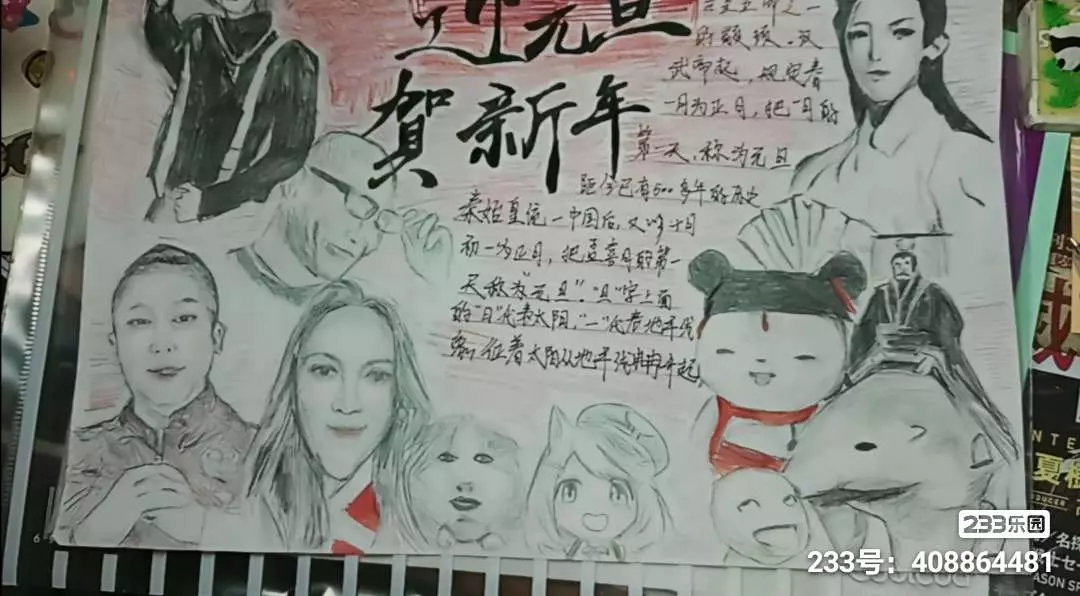 迎元旦
贺新年
武帝起,规定春
一月为正月,把一月的
第一天,称为元旦
距今已有500多年的历史
秦始皇统一中国后,又以十月
初一为正月,把孟喜月的第一
天称为"元旦"."旦"字上面
的"日"代表太阳,"一"代表地平线
太阳从地平线冉冉升起
233乐园
233号:408864481
NTE
夏
ODUCER
名探
ASON SP